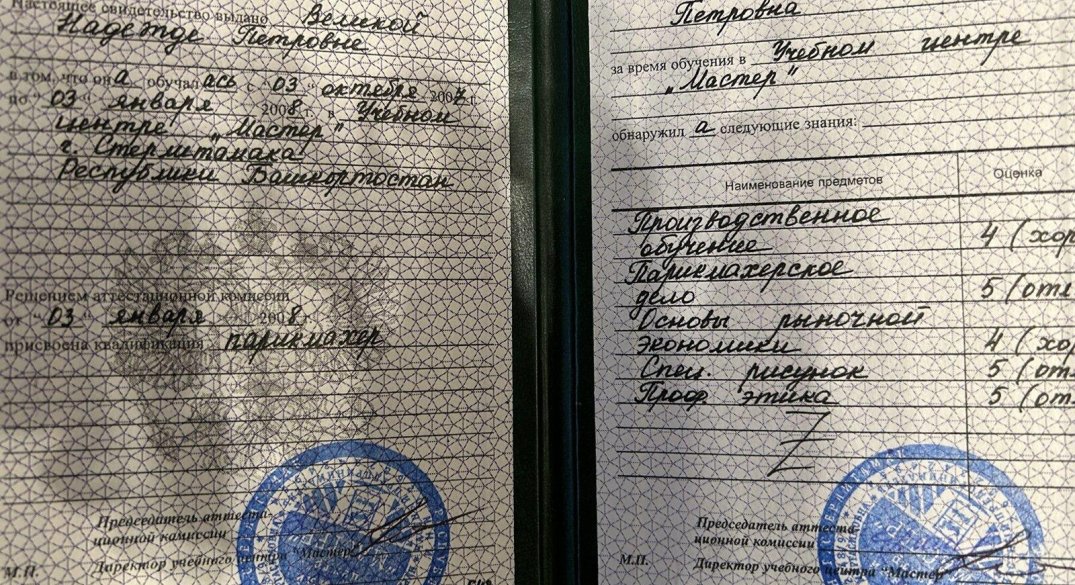 Настоящее свидетельство выдано Великой
Надежде Петровне
в том, что он а обучал ась с " 03 " октября 2007 г.
по " 03 " января 2008 г. в Учебном
центре „Мастер"
г. Стерлитамака
Республики Башкортостан
Решением аттестационной комиссии
от " 03 " января 2008 г.
присвоена квалификация парикмахер
Председатель аттеста-
ционной комиссии
М.П.
Директор учебного центра "Мастер"
Петровна
за время обучения в Учебном центре
„Мастер"
обнаружил а следующие знания:
Наименование предметов Оценка
Производственное
обучение 4 (хор
Парикмахерское
дело 5 (отл
Основы рыночной
экономики 4 (хор
Спец. рисунок 5 (отл
Проф. этика 5 (отл
Председатель аттеста-
ционной комиссии
М.П.
Директор учебного центра "Мастер"